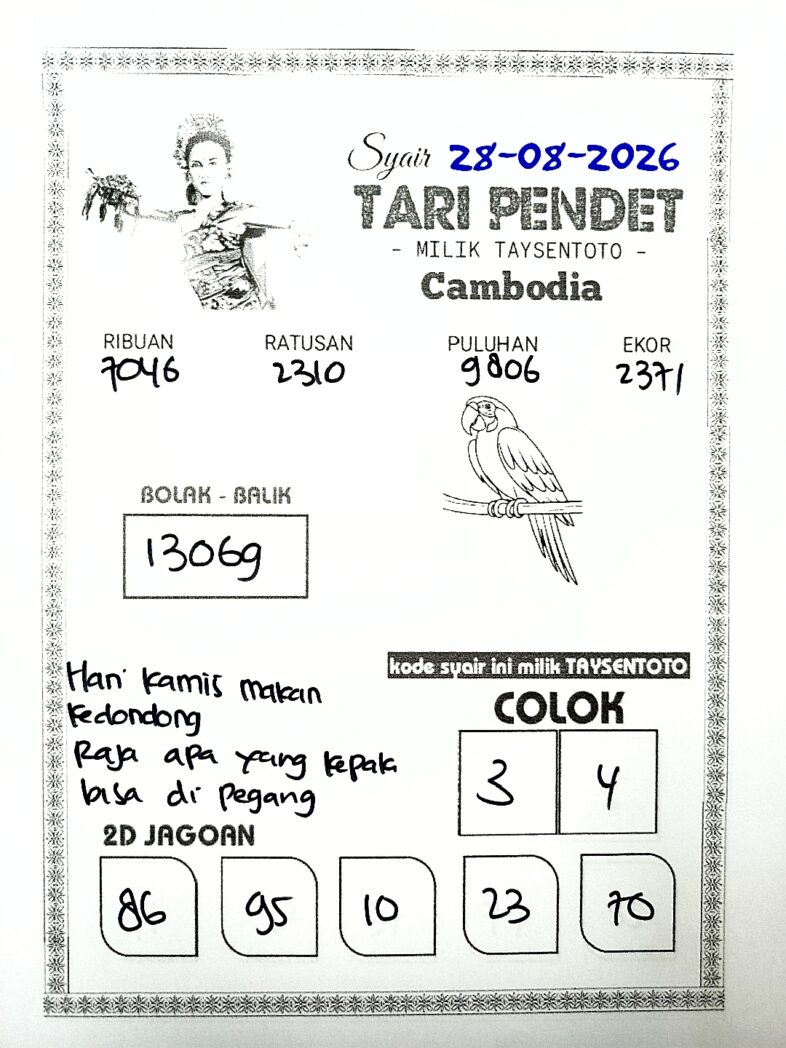 Syair 28-08-2026
TARI PENDET
- MILIK TAYSENTOTO -
Cambodia
RIBUAN RATUSAN PULUHAN EKOR
7046 2310 9806 2371
BOLAK - BALIK
13069
Hari kamis makan
kedondong
Raja apa yang kepala
bisa di pegang
kode syair ini milik TAYSENTOTO
COLOK
3 4
2D JAGOAN
86 95 10 23 70